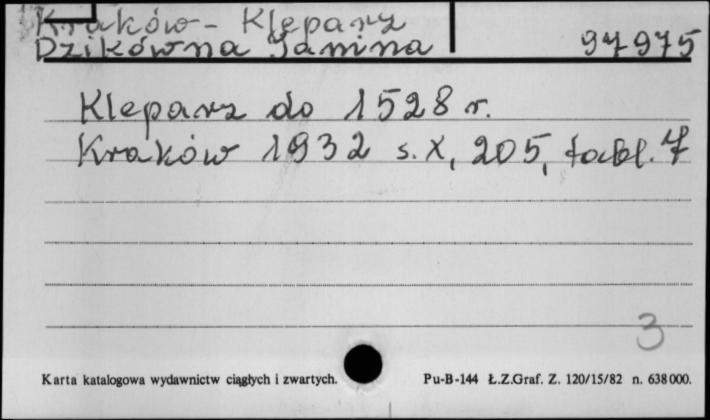 Kraków - Kleparz
Dzikówna Janina 97975
Kleparz do 1528 r.
Kraków 1932 s. X, 205, tabl. 7
3
Karta katalogowa wydawnictw ciągłych i zwartych. Pu-B-144 Ł.Z.Graf. Z. 120/15/82 n. 638000.